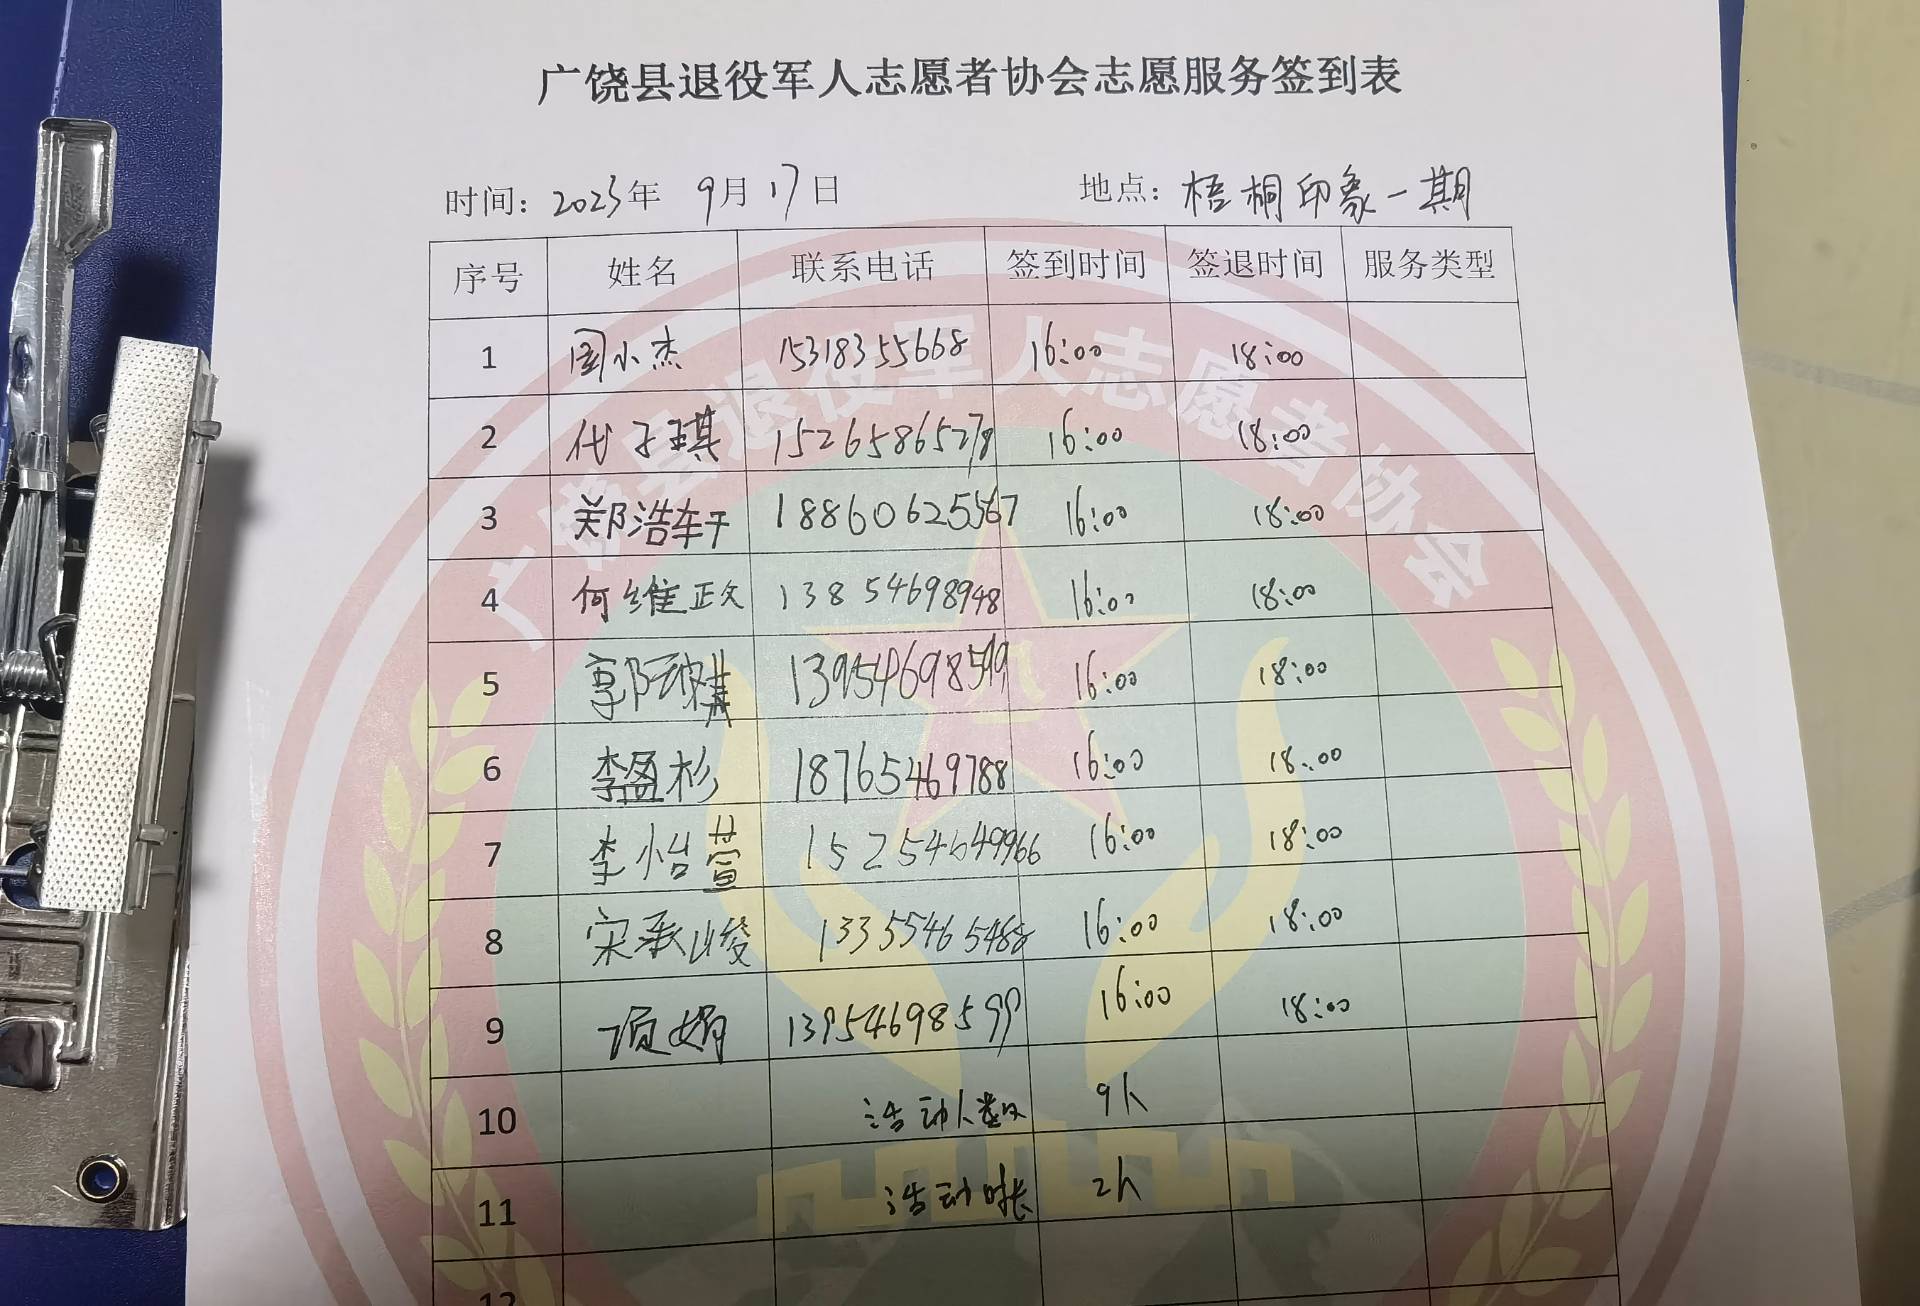 广饶县退役军人志愿者协会志愿服务签到表
时间: 2023年 9月17日 地点: 梧桐印象一期
序号 姓名 联系电话 签到时间 签退时间 服务类型
1 周小杰 15318355668 16:00 18:00
2 代子琪 15265865278 16:00 18:00
3 郑浩轩 18860625567 16:00 18:00
4 何维政 13854698948 16:00 18:00
5 13954698599 16:00 18:00
6 李盈杉 18765469788 16:00 18:00
7 李怡萱 15254649966 16:00 18:00
8 宋承峻 13355465488 16:00 18:00
9 项娟 13954698599 16:00 18:00
10 活动人数 9人
11 活动时长 2h
12
广饶县退役军人志愿者协会